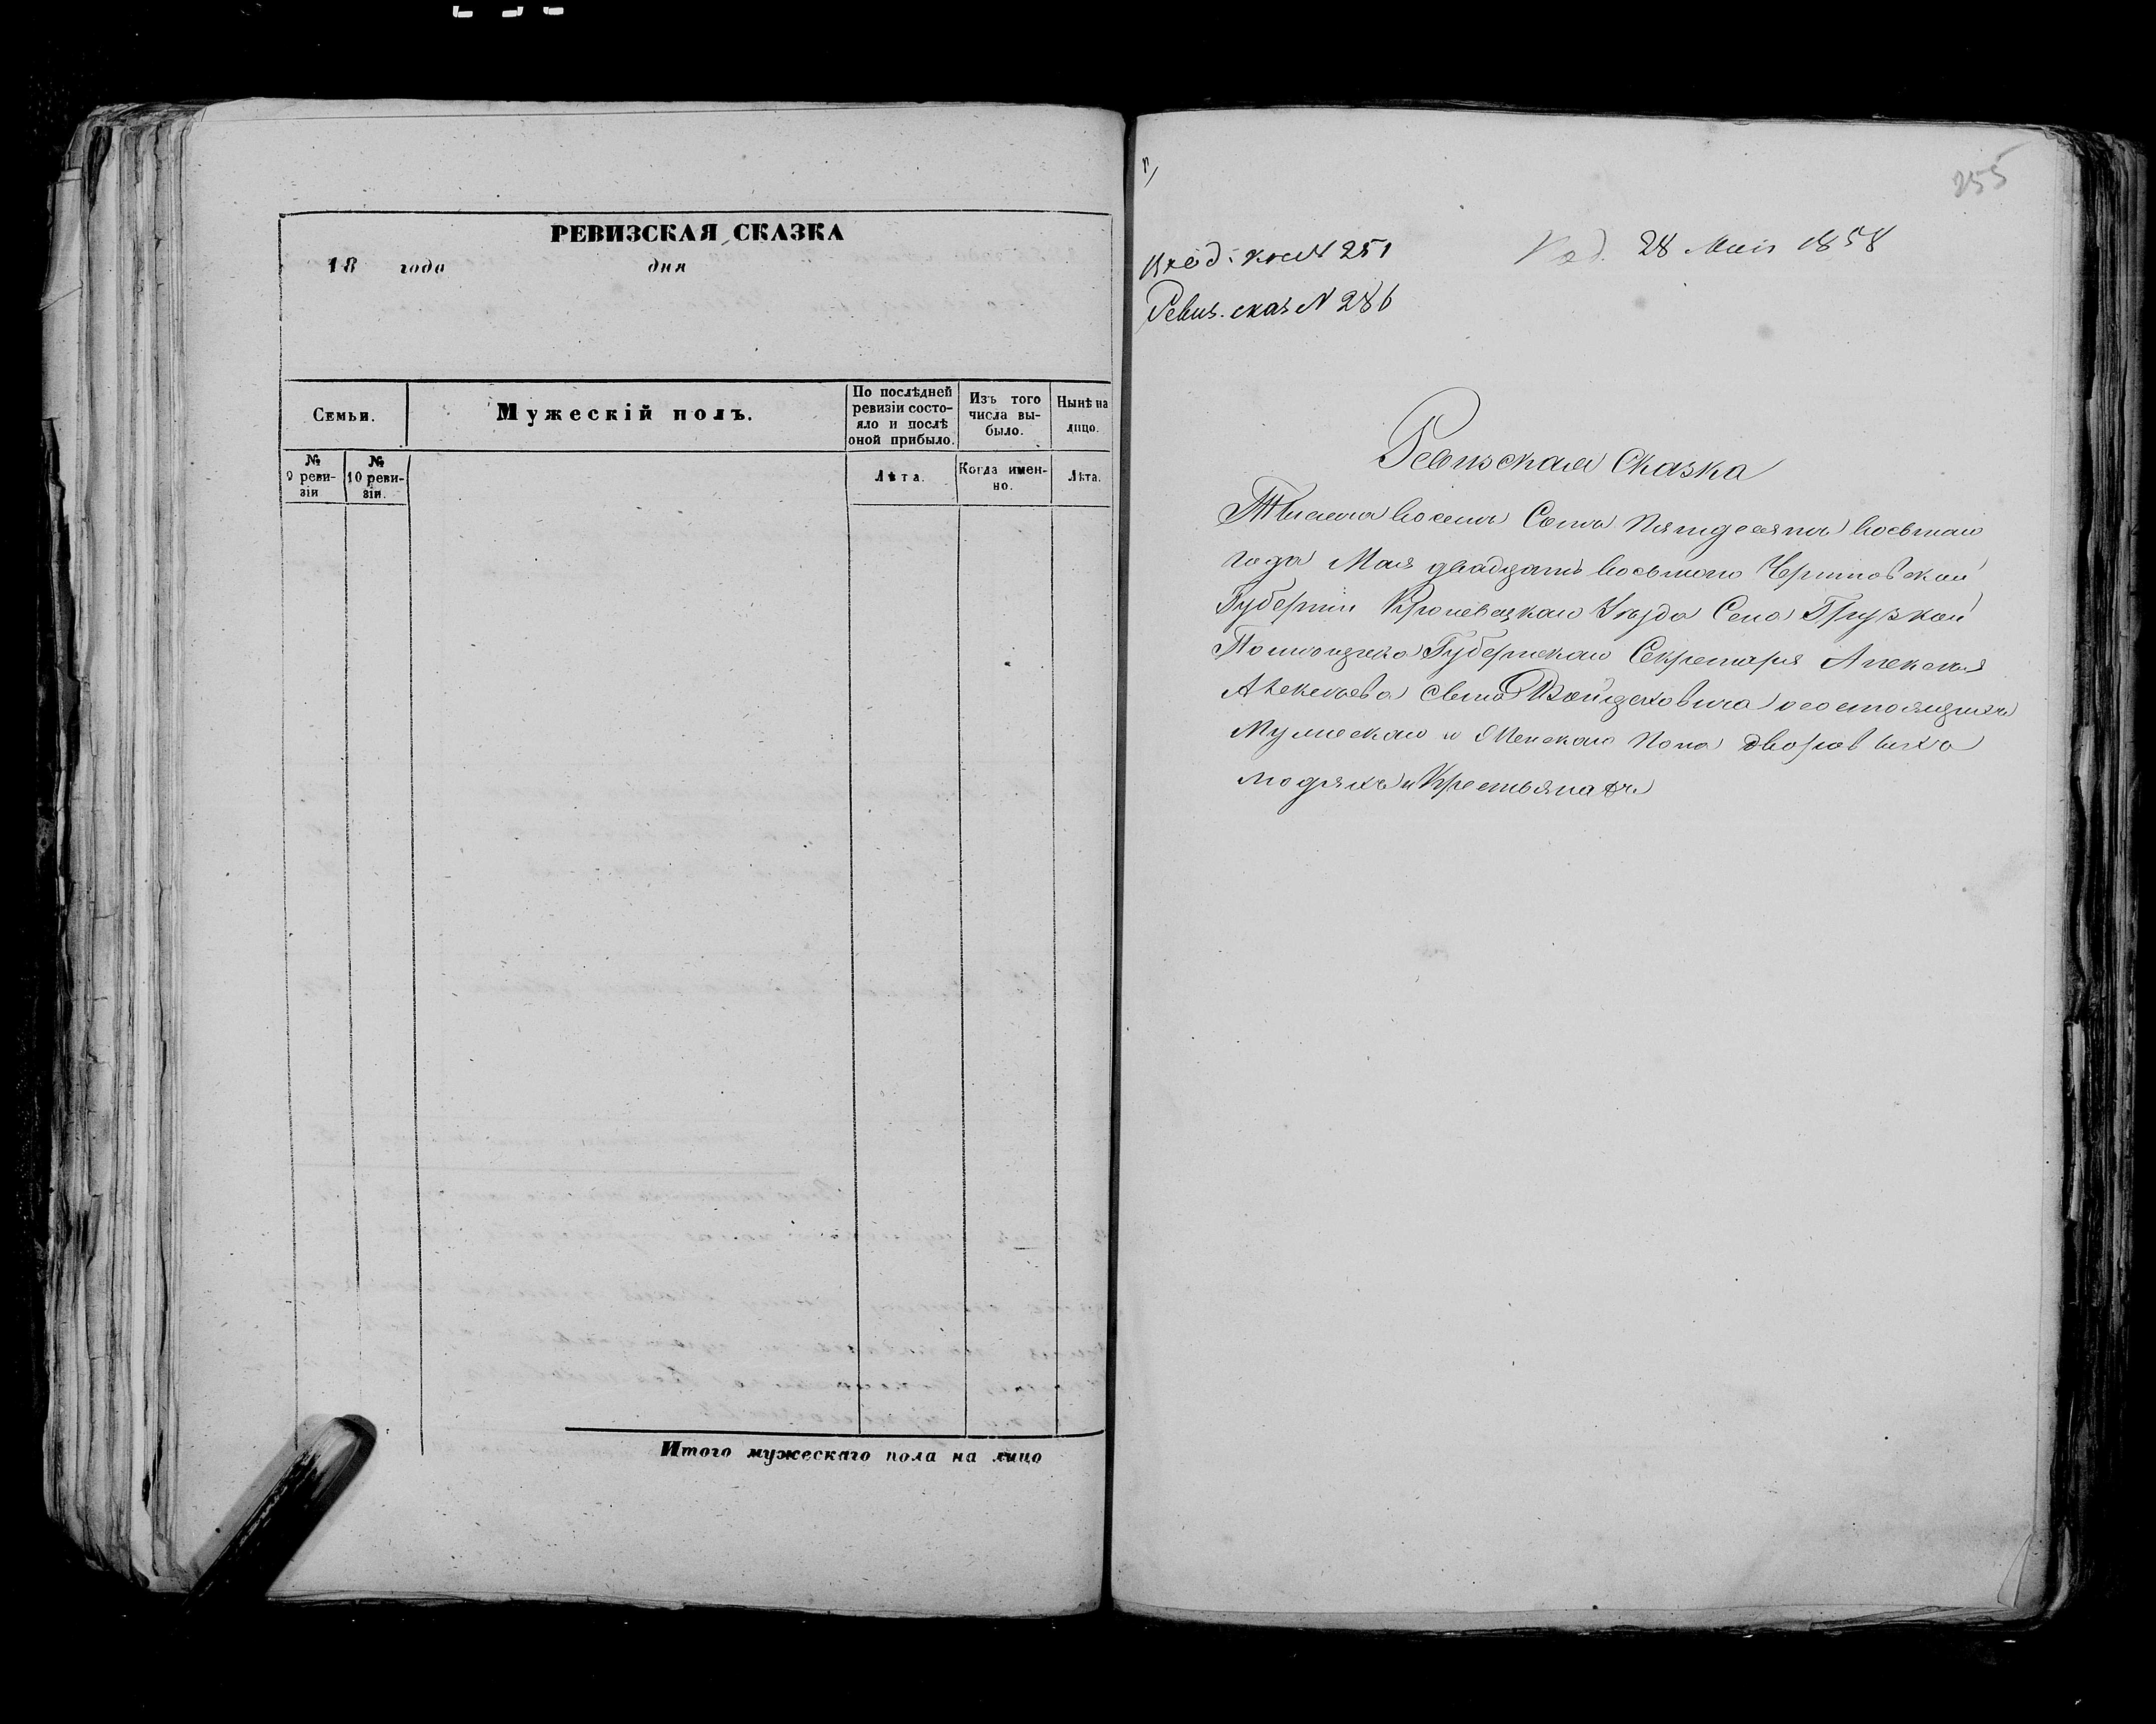 РЕВИЗСКАЯ СКАЗКА
18 года дня
Семьи.
Мужескій полъ.
По послѣдней
ревизіи состо-
яло и послѣ
оной прибыло.
Изъ того
числа вы-
было.
Нынѣ на
лицо.
№
9 реви-
зіи
№
10 реви-
зіи.
Лѣта.
Когда имен-
но.
Лѣта.
Итого мужескаго пола на лицо
255
Вход: № 251
Под. 28 Мая 1858
Ревиз. сказ N 286
Ревизская Сказка
Тысяча восемь Сотъ Пятдесятъ восьмаго
года Мая двадцать восьмого Черниговской
Губерніи Кролевецкаго Уѣзда Села Грузкой
Помещика Губернскаго Секретаря Алексея
Алексеева сына Войцеховича о состоящихъ
Мужескаго и Женскаго Пола дворовыхъ
людяхъ и Крестьянахъ